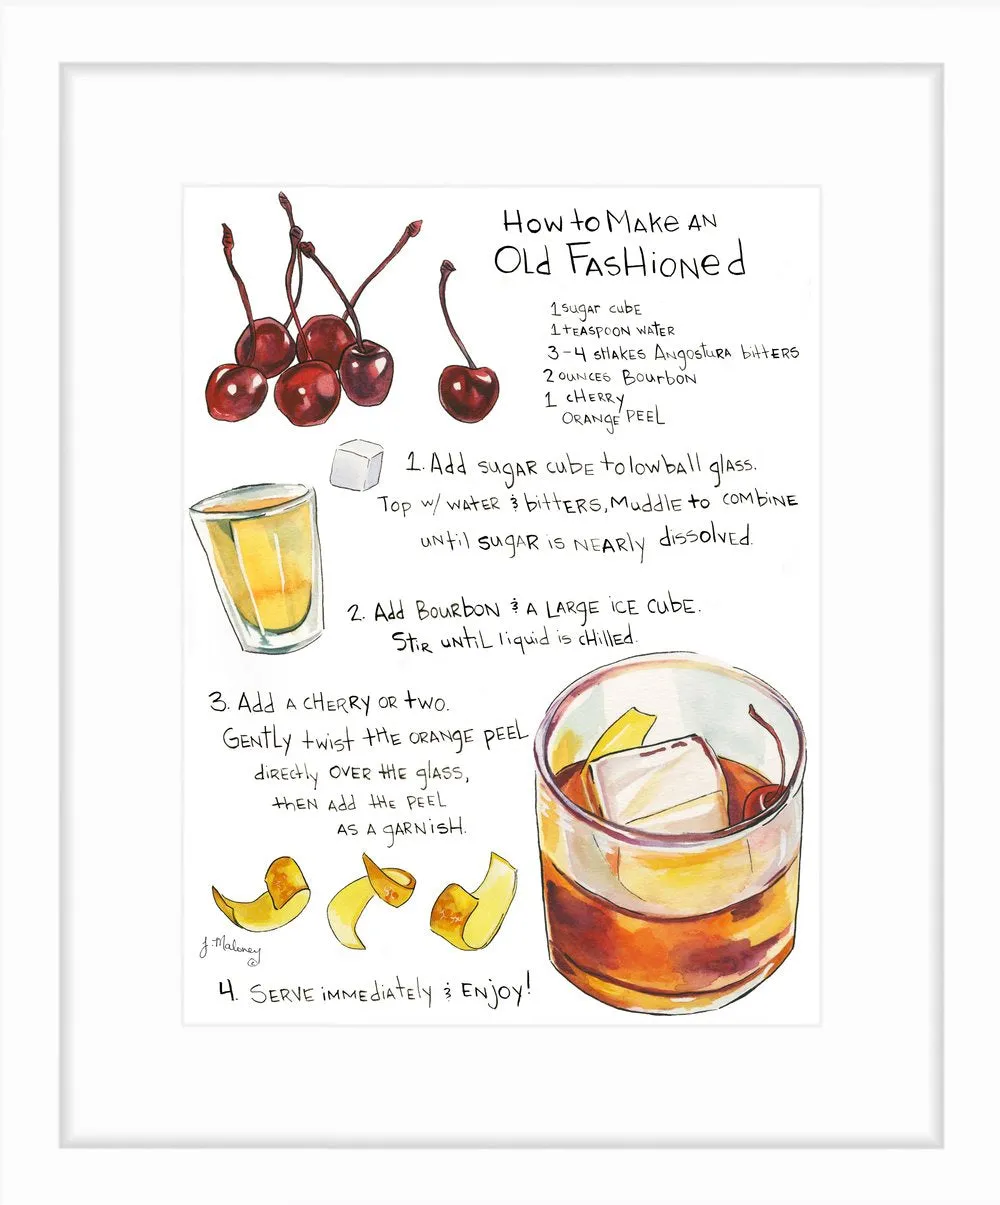 How to Make an
Old Fashioned
1 sugar cube
1 teaspoon water
3-4 shakes Angostura bitters
2 ounces Bourbon
1 cherry
orange peel
1. Add sugar cube to lowball glass.
Top w/ water & bitters, Muddle to combine
until sugar is nearly dissolved.
2. Add Bourbon & a large ice cube.
Stir until liquid is chilled.
3. Add a cherry or two.
Gently twist the orange peel
directly over the glass,
then add the peel
as a garnish.
J. Maloney
©
4. Serve immediately & Enjoy!